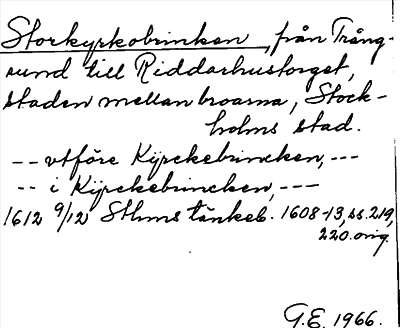 Storkyrkobrinken, från Trång-
sund till Riddarhustorget,
staden mellan broarna, Stock-
holms stad.
-- vtföre Kyrckebrincken, ---
-- i Kyrckebrincken, ---
1612 9/12 Sthms tänkeb. 1608-13, ss. 219,
220. orig.
G.E. 1966.